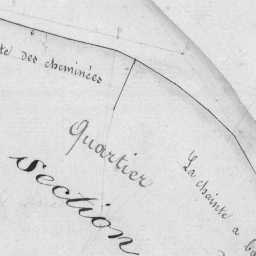 te des cheminées
Quartier
Section
La chainte a ba